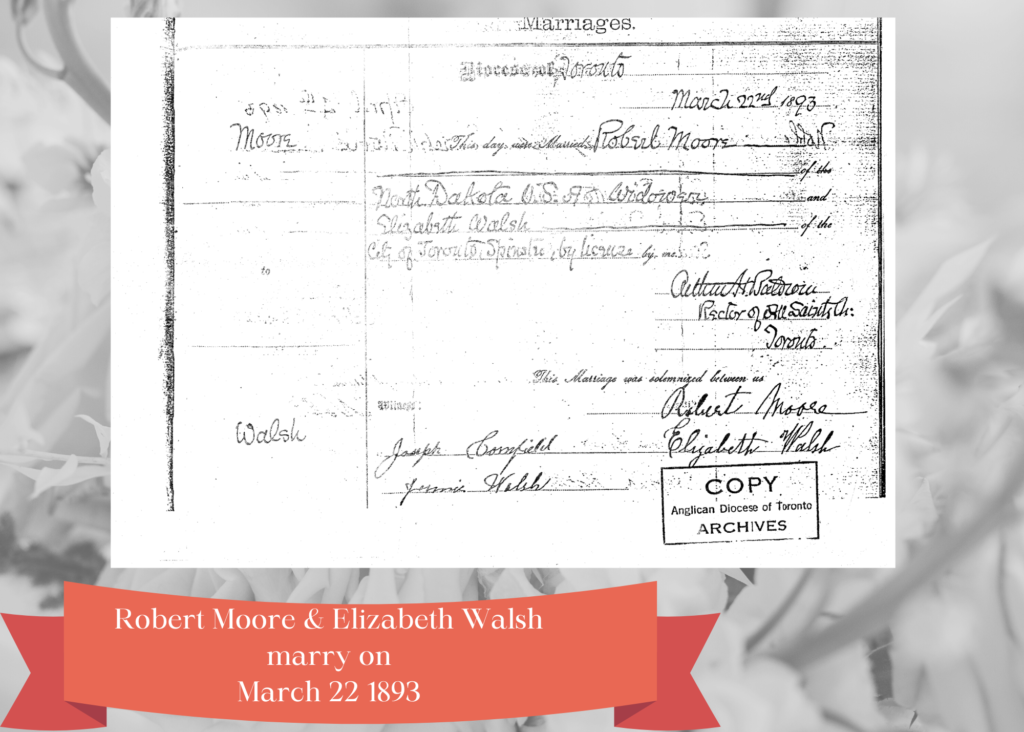 Marriages.
Diocese of Toronto
March 22nd 1893
Moore This day were Married Robert Moore
of the
North Dakota U.S. of A Widower and
Elizabeth Walsh of the
City of Toronto, Spinster, by license by me.
to
Arthur H. Baldwin
Rector of All Saints Ch:
Toronto.
This Marriage was solemnized between us
Witness: Robert Moore
Walsh Joseph Elizabeth Walsh
Jennie Walsh
COPY
Anglican Diocese of Toronto
ARCHIVES
Robert Moore & Elizabeth Walsh
marry on
March 22 1893